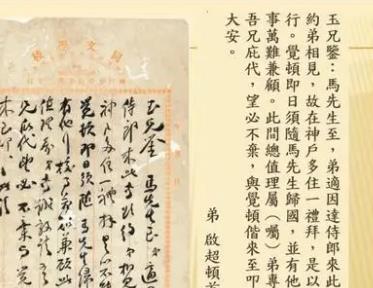 玉兄鑒：馬先生至，弟適因達侍郎來此
約弟相見，故在神戶多住一禮拜，是以
行。覺頓即日須隨馬先生歸國，並有他
事萬難兼顧。此間總值理屬（囑）弟專
吾兄庇代，望必不棄，與覺頓偕來至叩
大安。
弟 啟超頓首
同文學校
玉兄鑒 馬先生至 弟適
侍郎來此約弟相見
神戶多住一禮拜是以不能
覺頓即日須隨馬先生歸
有他事萬難兼顧此
值理
兄庇代望必不棄與覺